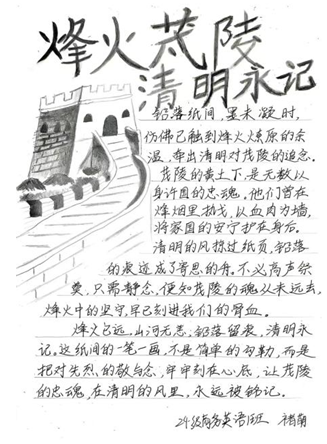 烽火茂陵
清明永记
铅落纸间，墨未凝时，
仿佛已触到烽火燎原的余
温，牵出清明对茂陵的追念。
茂陵的黄土下，是无数以
身许国的忠魂。他们曾在
烽烟里执戈，以血肉为墙，
将家国的安宁护在身后。
清明的风掠过纸页，铅落
的痕迹成了寄思的舟。不必高声织
奠，只需静念，便知茂陵的魂从未远去，
烽火中的坚守，早已刻进我们的骨血。
烽火已远，山河无恙；铅落留痕，清明永
记。这纸间的一笔一画，不是简单的勾勒，而是
把对先烈的敬与念，牢牢刻在心底，让茂陵
的忠魂，在清明的风里，永远被铭记。
24级商务英语1班